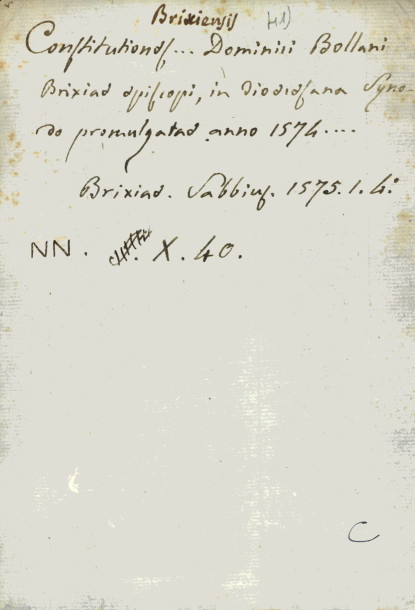 Brixiensis 41)
Constitutiones... Dominici Bollani
Brixiae episcopi, in dioecesana Syno-
do promulgatae anno 1574....
Brixiae. Sabbius. 1575. 1. 4°
NN. X. 40.
C